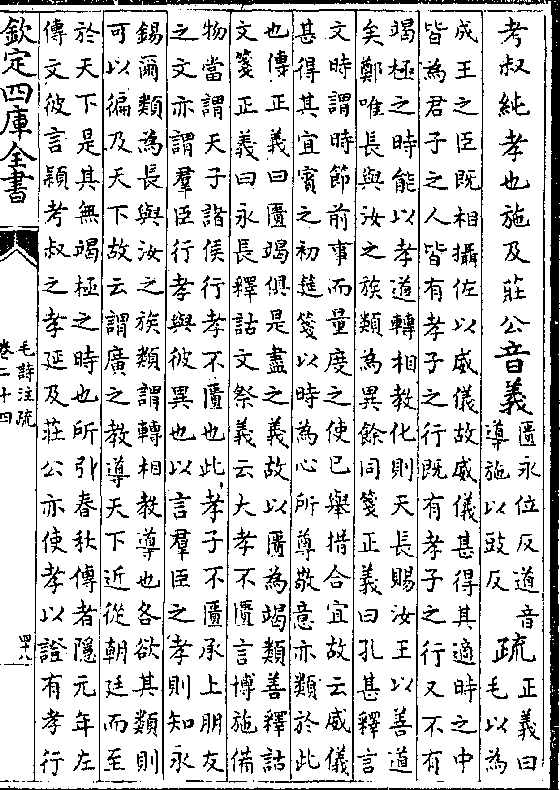 考叔純孝也施及莊公音義匱永位反道音導施以豉反疏正義曰毛以為
成王之臣既相攝佐以威儀故威儀甚得其適時之中
皆為君子之人皆有孝子之行既有孝子之行又不有
竭極之時能以孝道轉相教化則天長賜汝王以善道
矣鄭唯長與汝之族類為異餘同箋正義曰孔甚釋言
文時謂時節前事而量度之使已舉措合宜故云威儀
甚得其宜賓之初筵箋以時為心所尊敬意亦類於此
也傳正義曰匱竭俱是盡之義故以匱為竭類善釋詁
文箋正義曰永長釋詁文祭義云大孝不匱言博施備
物當謂天子諸侯行孝不匱也此孝子不匱承上朋友
之文亦謂羣臣行孝與彼異也以言羣臣之孝則知永
錫爾類為長與汝之族類謂轉相教導也各欲其類則
可以徧及天下故云謂廣之教導天下近從朝廷而至
於天下是其無竭極之時也所引春秋傳者隱元年左
傳文彼言穎考叔之孝延及莊公亦使孝以證有孝行
欽定四庫全書
毛詩注疏
卷二十四
四八